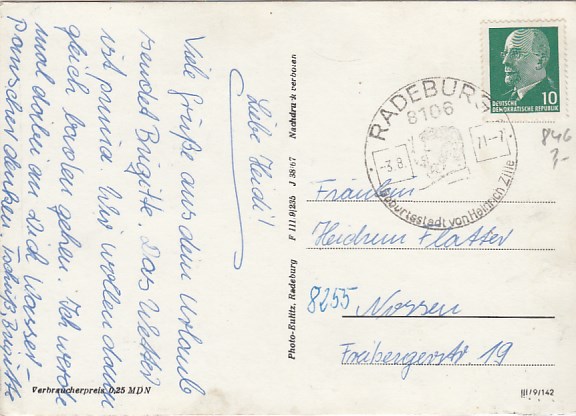 Liebe Heidi!
Viele Grüße aus dem Urlaub
sendet Brigitte. Das Wetter
ist prima. Wir wollen dann
gleich baden gehen. Ich werde
mal dabei an dich Wasser-
panscher denken. Tschüß Brigitte
Verbraucherpreis 0,25 MDN
Photo-Eulitz, Radeburg F III.9/235 J 38/67 Nachdruck verboten
DEUTSCHE
DEMOKRATISCHE REPUBLIK 10
RADEBURG
8106
-3.8. 71-7
Geburtsstadt von Heinrich Zille
846
Fräulein
Heidrun Flatter
8255 Nossen
Freibergerstr. 19
III/9/142